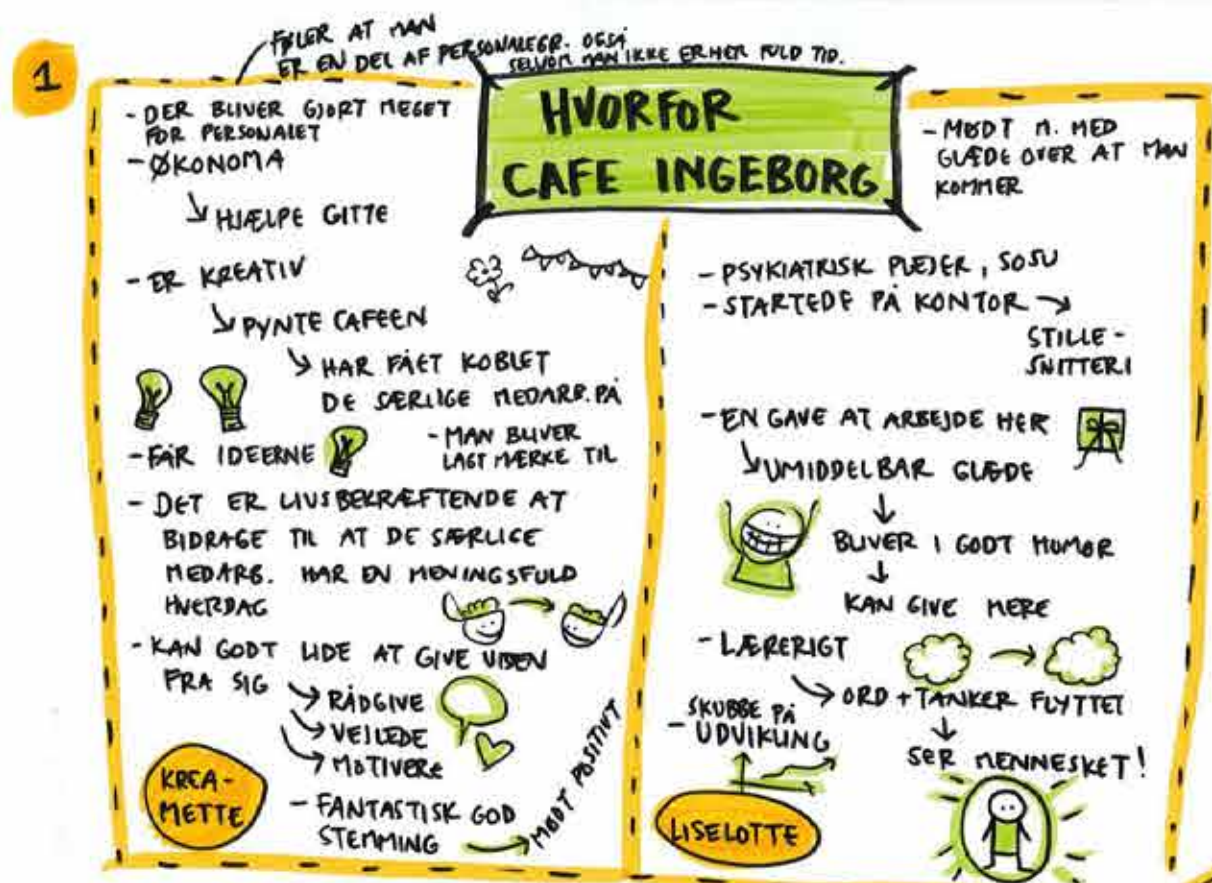 1
FØLER AT MAN
ER EN DEL AF PERSONALEGR. OGSÅ
SELVOM MAN IKKE ER HER FULD TID.
HVORFOR
CAFE INGEBORG
- DER BLIVER GJORT MEGET
FOR PERSONALET
- ØKONOMA
HJÆLPE GITTE
- ER KREATIV
PYNTE CAFEEN
HAR FÅET KOBLET
DE SÆRLIGE MEDARB. PÅ
- FÅR IDEERNE
- MAN BLIVER
LAGT MÆRKE TIL
- DET ER LIVSBEKRÆFTENDE AT
BIDRAGE TIL AT DE SÆRLIGE
MEDARB. HAR EN MENINGSFULD
HVERDAG
- KAN GODT LIDE AT GIVE VIDEN
FRA SIG
RÅDGIVE
VEJLEDE
MOTIVERE
- FANTASTISK GOD
STEMMING
MØDT POSITIVT
KREA-
METTE
- MØDT M. MED
GLÆDE OVER AT MAN
KOMMER
- PSYKIATRISK PLEJER, SOSU
- STARTEDE PÅ KONTOR
STILLE-
SNITTERI
- EN GAVE AT ARBEJDE HER
UMIDDELBAR GLÆDE
BLIVER I GODT HUMØR
KAN GIVE MERE
- LÆRERIGT
ORD + TANKER FLYTTET
SER MENNESKET!
- SKUBBE PÅ
UDVIKLING
LISELOTTE